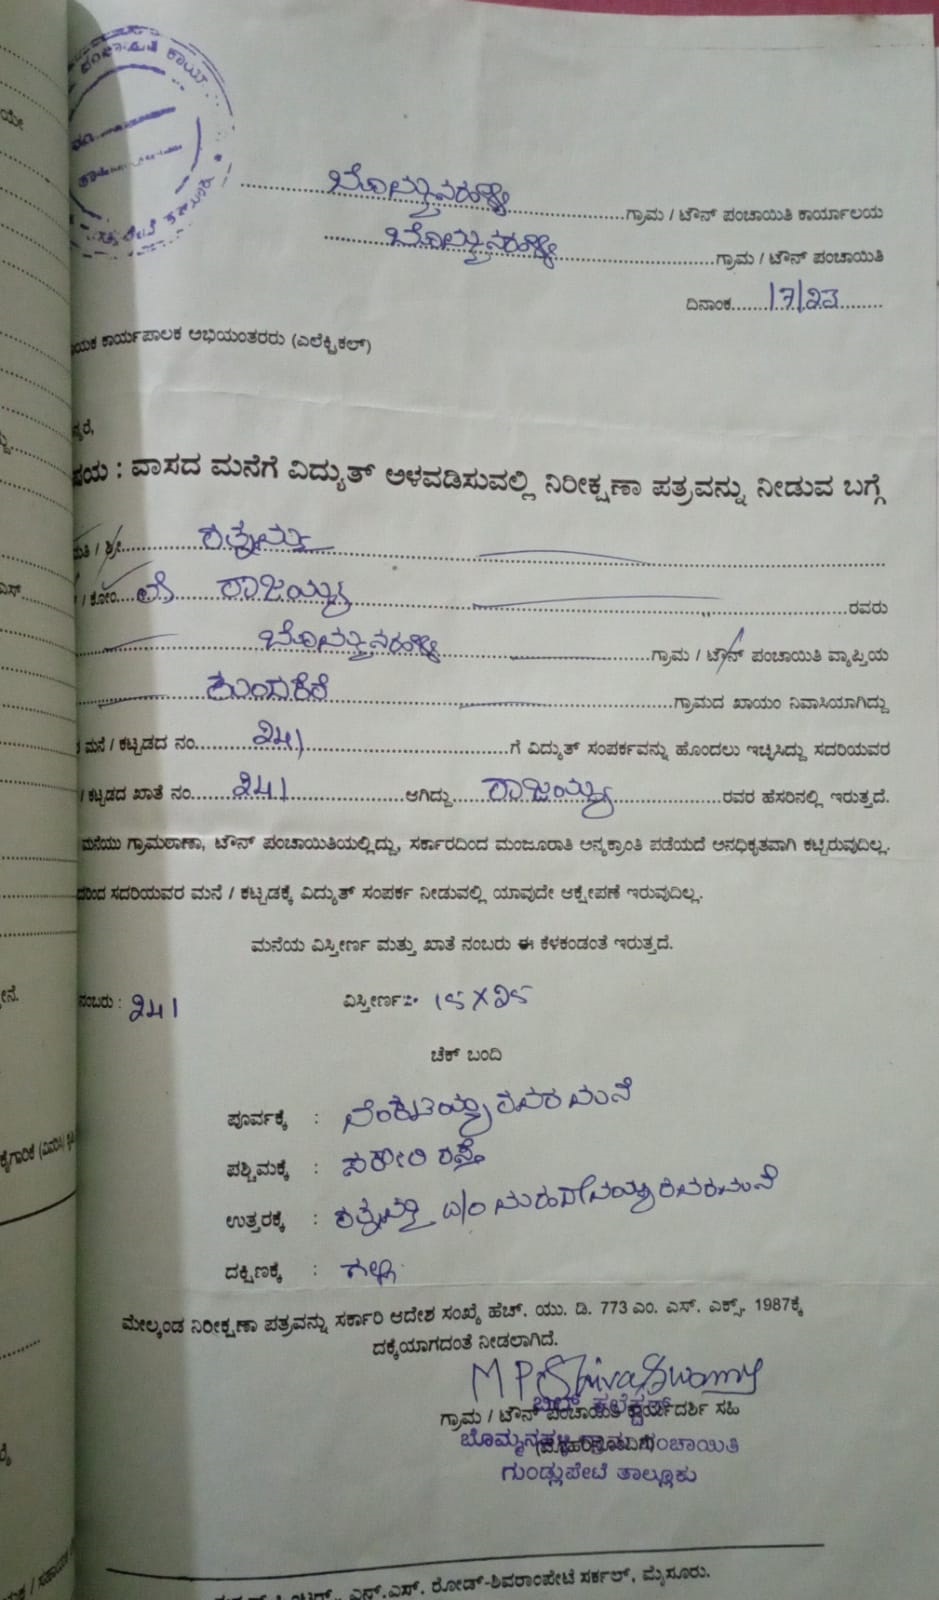 ಬೊಮ್ಮನಹಳ್ಳಿ ಗ್ರಾಮ / ಟೌನ್ ಪಂಚಾಯಿತಿ ಕಾರ್ಯಾಲಯ
ಬೊಮ್ಮನಹಳ್ಳಿ ಗ್ರಾಮ / ಟೌನ್ ಪಂಚಾಯಿತಿ
ದಿನಾಂಕ 17/23
ಕಾರ್ಯಪಾಲಕ ಅಭಿಯಂತರರು (ಎಲೆಕ್ಟ್ರಿಕಲ್)
: ವಾಸದ ಮನೆಗೆ ವಿದ್ಯುತ್ ಅಳವಡಿಸುವಲ್ಲಿ ನಿರೀಕ್ಷಣಾ ಪತ್ರವನ್ನು ನೀಡುವ ಬಗ್ಗೆ
/ ಶ್ರೀ ರತ್ನಮ್ಮ
/ ಕೋಂ ಲೇ ರಾಜಯ್ಯ ರವರು
ಬೊಮ್ಮನಹಳ್ಳಿ ಗ್ರಾಮ / ಟೌನ್ ಪಂಚಾಯಿತಿ ವ್ಯಾಪ್ತಿಯ
ಕುಂದಕೆರೆ ಗ್ರಾಮದ ಖಾಯಂ ನಿವಾಸಿಯಾಗಿದ್ದು
ಮನೆ / ಕಟ್ಟಡದ ನಂ. 241 ಗೆ ವಿದ್ಯುತ್ ಸಂಪರ್ಕವನ್ನು ಹೊಂದಲು ಇಚ್ಛಿಸಿದ್ದು ಸದರಿಯವರ
/ ಕಟ್ಟಡದ ಖಾತೆ ನಂ. 241 ಆಗಿದ್ದು ರಾಜಯ್ಯ ರವರ ಹೆಸರಿನಲ್ಲಿ ಇರುತ್ತದೆ.
ಮನೆಯು ಗ್ರಾಮಠಾಣಾ, ಟೌನ್ ಪಂಚಾಯಿತಿಯಲ್ಲಿದ್ದು, ಸರ್ಕಾರದಿಂದ ಮಂಜೂರಾತಿ ಅನ್ಯಕ್ರಾಂತಿ ಪಡೆಯದೆ ಅನಧಿಕೃತವಾಗಿ ಕಟ್ಟಿರುವುದಿಲ್ಲ.
ಸದರಿಯವರ ಮನೆ / ಕಟ್ಟಡಕ್ಕೆ ವಿದ್ಯುತ್ ಸಂಪರ್ಕ ನೀಡುವಲ್ಲಿ ಯಾವುದೇ ಆಕ್ಷೇಪಣೆ ಇರುವುದಿಲ್ಲ.
ಮನೆಯ ವಿಸ್ತೀರ್ಣ ಮತ್ತು ಖಾತೆ ನಂಬರು ಈ ಕೆಳಕಂಡಂತೆ ಇರುತ್ತದೆ.
ನಂಬರು : 241 ವಿಸ್ತೀರ್ಣ :- 15X25
ಚೆಕ್ ಬಂದಿ
ಪೂರ್ವಕ್ಕೆ : ವೆಂಕಟಯ್ಯ ರವರ ಮನೆ
ಪಶ್ಚಿಮಕ್ಕೆ : ಸರ್ಕಾರಿ ರಸ್ತೆ
ಉತ್ತರಕ್ಕೆ : ರತ್ನಮ್ಮ ಮಹದೇವಯ್ಯ ರವರ ಮನೆ
ದಕ್ಷಿಣಕ್ಕೆ : ಗಲ್ಲಿ
ಮೇಲ್ಕಂಡ ನಿರೀಕ್ಷಣಾ ಪತ್ರವನ್ನು ಸರ್ಕಾರಿ ಆದೇಶ ಸಂಖ್ಯೆ ಹೆಚ್. ಯು. ಡಿ. 773 ಎಂ. ಎಸ್. ಎಕ್ಸ್. 1987ಕ್ಕೆ
ದಕ್ಕೆಯಾಗದಂತೆ ನೀಡಲಾಗಿದೆ.
M P Shiva Swamy
ಬಿಲ್ ಕಲೆಕ್ಟರ್
ಗ್ರಾಮ / ಟೌನ್ ಪಂಚಾಯಿತಿ ಕಾರ್ಯದರ್ಶಿ ಸಹಿ
ಬೊಮ್ಮನಹಳ್ಳಿ ಗ್ರಾಮ ಪಂಚಾಯಿತಿ
ಗುಂಡ್ಲುಪೇಟೆ ತಾಲ್ಲೂಕು
ಎನ್.ಎಸ್. ರೋಡ್-ಶಿವರಾಂಪೇಟೆ ಸರ್ಕಲ್, ಮೈಸೂರು.